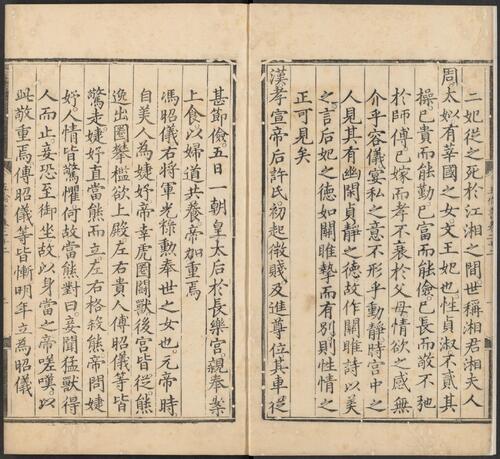 二妃從之死於江湘之間世稱湘君湘夫人
周太姒有莘國之女文王妃也性貞淑不貳其
操已貴而能勤已富而能儉已長而敬不弛
於師傅已嫁而孝不衰於父母情欲之感無
介乎容儀宴私之意不形乎動靜時宮中之
人見其有幽閒貞靜之德故作關雎詩以美
之言后妃之德如關雎摯而有別則性情之
正可見矣
漢孝宣帝后許氏初起微賤及進尊位其車從
甚節儉五日一朝皇太后於長樂宮親奉案
上食以婦道共養帝加重焉
馮昭儀右將軍光祿勲奉世之女也元帝時
自美人為婕妤帝幸虎圈鬭獸後宮皆從熊
逸出圈攀檻欲上殿左右貴人傅昭儀等皆
驚走婕妤直當熊而立左右格殺熊帝問婕
妤人情皆驚懼何故當熊對曰妾聞猛獸得
人而止妾恐至御坐故以身當之帝嗟嘆以
此敬重焉傅昭儀等皆慚明年立為昭儀